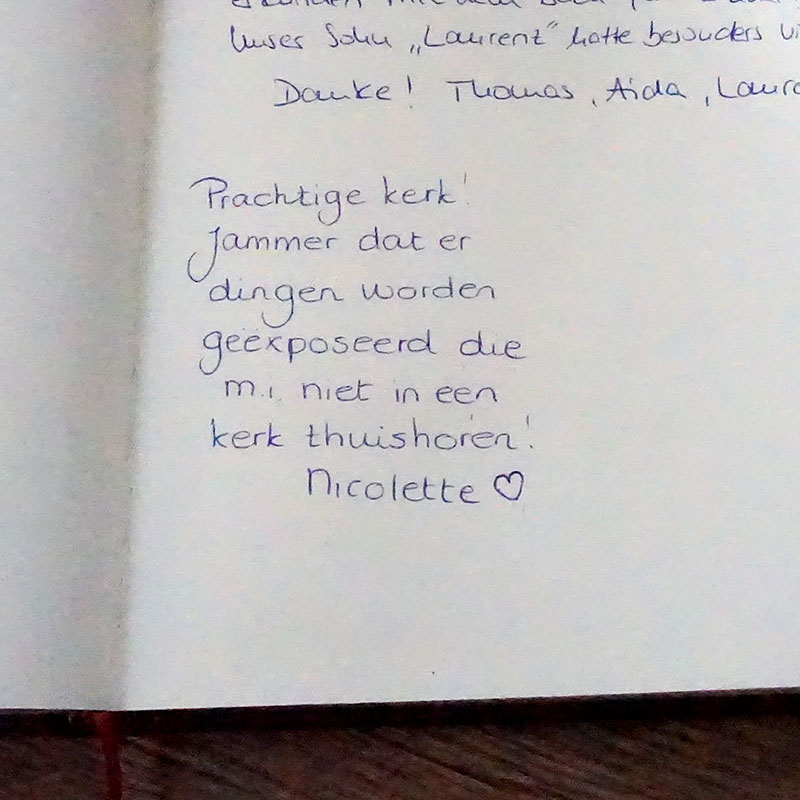 Unser Sohn „Laurenz“ hatte besonders
Danke! Thomas, Aida,
Prachtige kerk!
Jammer dat er
dingen worden
geëxposeerd die
m.i. niet in een
kerk thuishoren!
Nicolette ♡